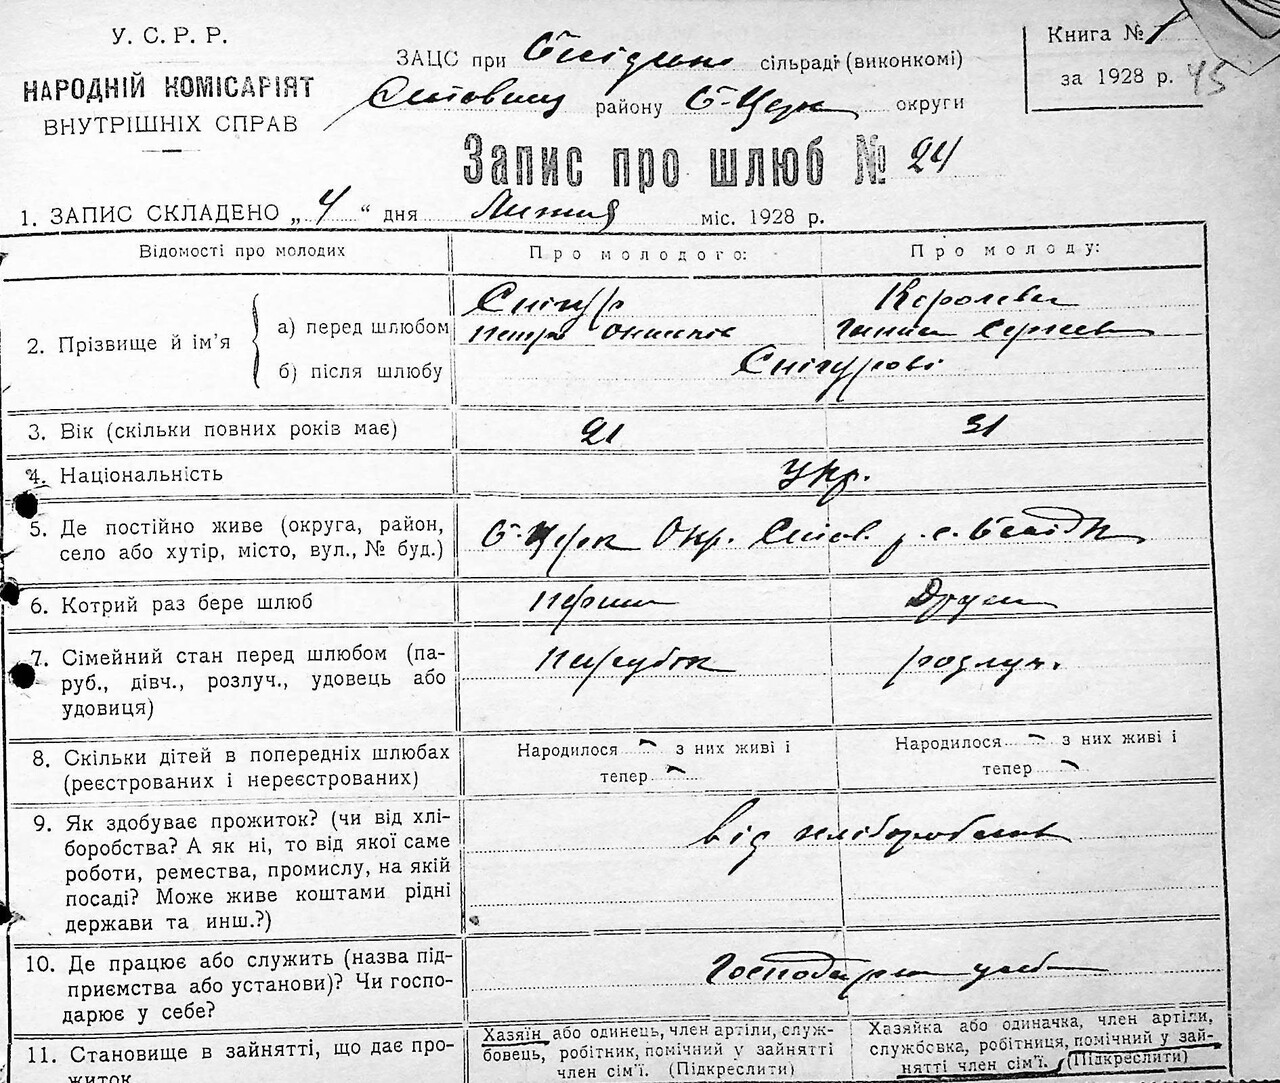 У. С. Р. Р.
НАРОДНІЙ КОМІСАРІЯТ
ВНУТРІШНІХ СПРАВ
ЗАЦС при сільраді (виконкомі)
району Б-Церк округи
Книга № 1
за 1928 р. 45
Запис про шлюб № 24
1. ЗАПИС СКЛАДЕНО „ 4 “ дня міс. 1928 р.
Відомості про молодих Про молодого: Про молоду:
2. Прізвище й ім’я
а) перед шлюбом
Снігур
Петро
Королева
Ганна
б) після шлюбу
Снігурові
3. Вік (скільки повних років має) 21 31
4. Національність Укр.
5. Де постійно живе (округа, район,
село або хутір, місто, вул., № буд.)
Б-Церк Окр. р. с.
6. Котрий раз бере шлюб перший Други
7. Сімейний стан перед шлюбом (па-
руб., дівч., розлуч., удовець або
удовиця)
парубок розлуч.
8. Скільки дітей в попередніх шлюбах
(реєстрованих і нереєстрованих)
Народилося - з них живі і
тепер -
Народилося - з них живі і
тепер -
9. Як здобуває прожиток? (чи від хлі-
боробства? А як ні, то від якої саме
роботи, ремества, промислу, на якій
посаді? Може живе коштами рідні
держави та инш.?)
від хліборобства
10. Де працює або служить (назва під-
приємства або установи)? Чи госпо-
дарює у себе?
Господарює у себе
11. Становище в зайнятті, що дає про-
житок
Хазяїн або одинець, член артіли, служ-
бовець, робітник, помічний у зайнятті
член сім’ї. (Підкреслити)
Хазяйка або одиначка, член артіли,
службовка, робітниця, помічний у зай-
нятті член сім’ї. (Підкреслити)